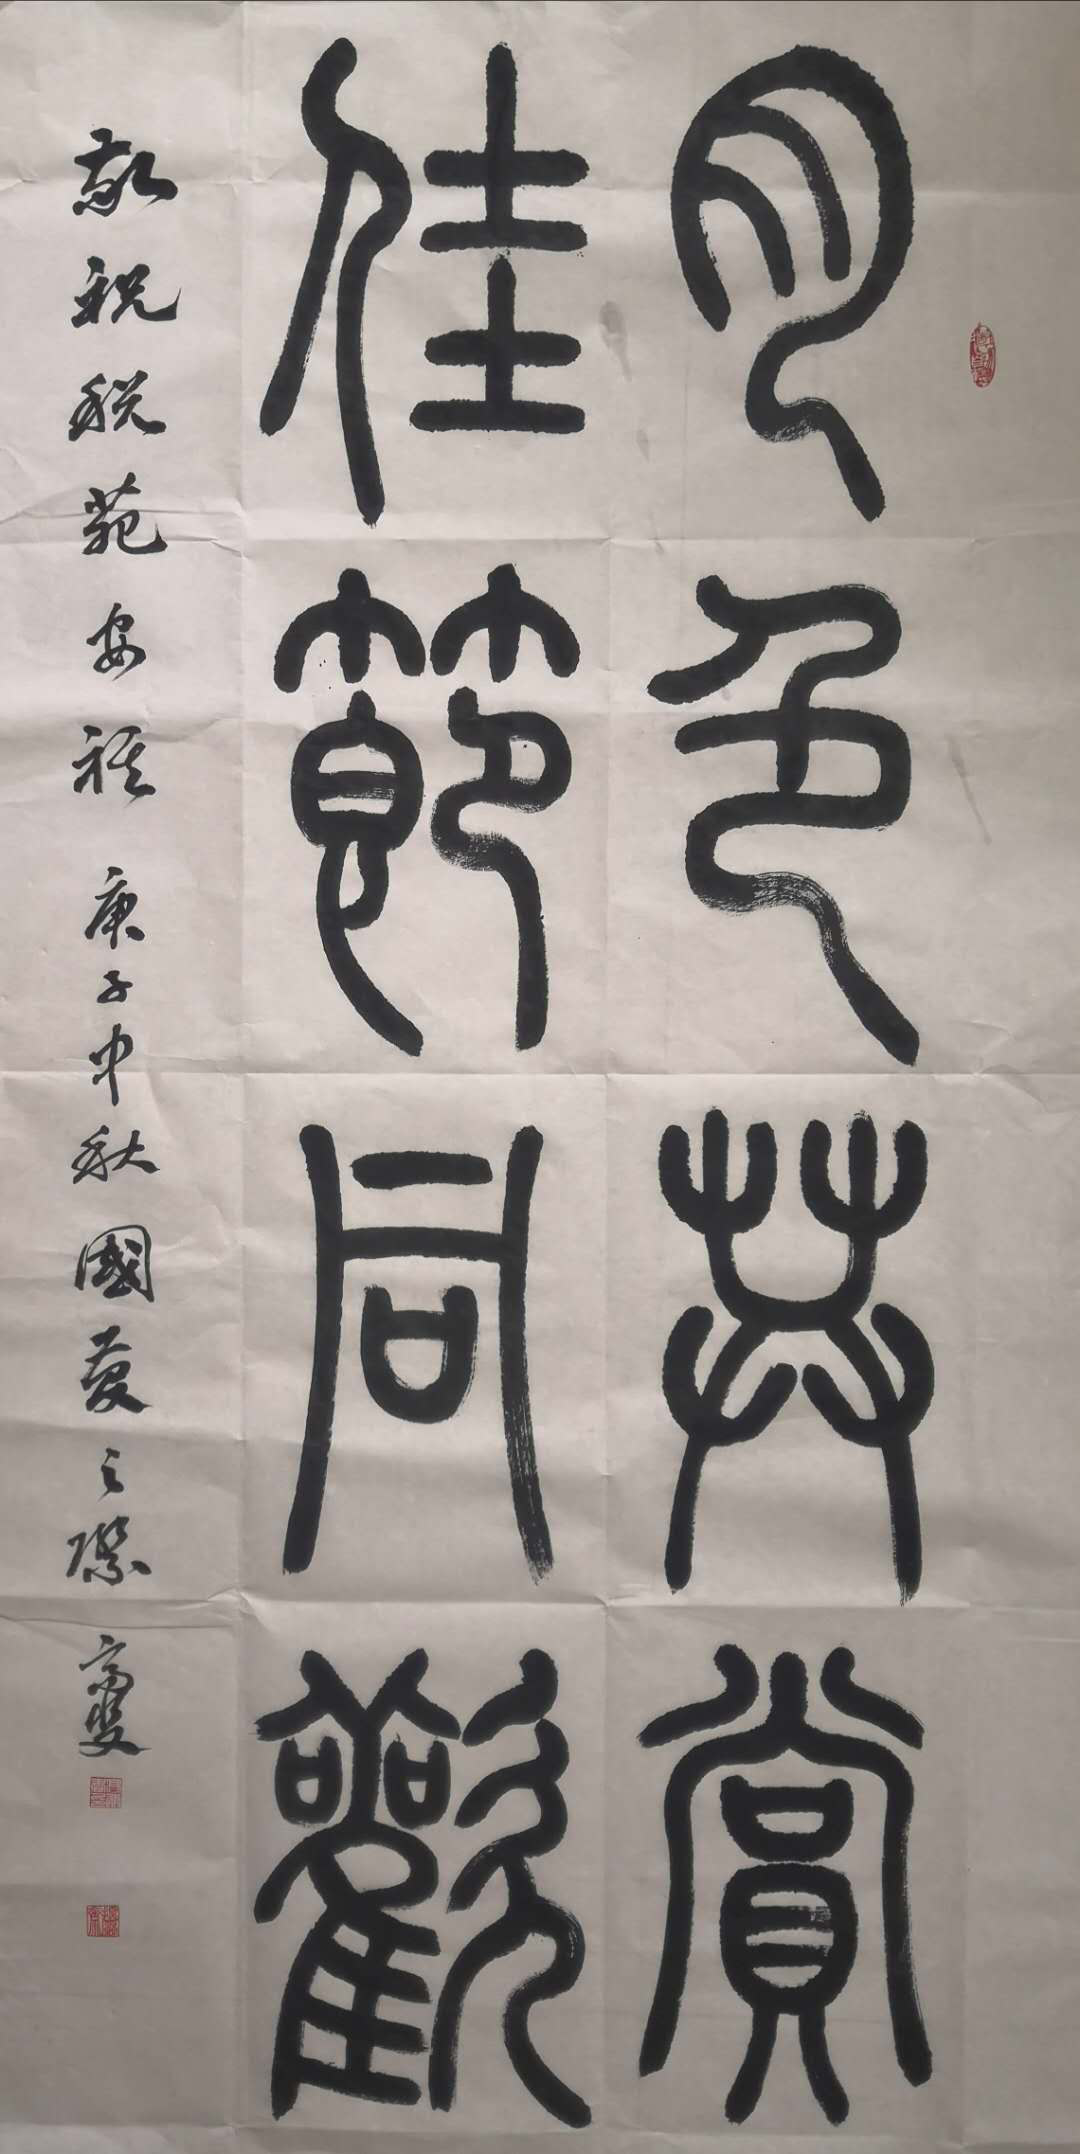 月色共賞
佳節同歡
敬祝税苑安祺 庚子中秋 國慶之際